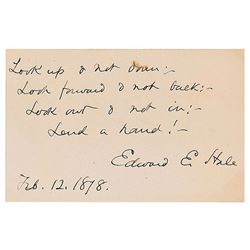 Look up & not down:-
Look forward & not back:-
Look out & not in:-
Lend a hand!-
Edward E. Hale
Feb. 12. 1878.